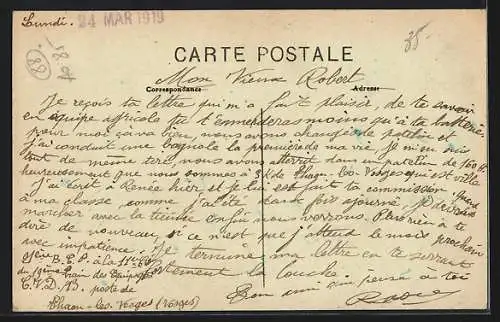 Lundi.
24 MAR 1919
88
35
CARTE POSTALE
Correspondance
Adresse
Mon Vieux Robert
Je reçois ta lettre qui m'a fait plaisir, de te savoir
en équipe agricole tu t'enmerderas moins qu'à ta batterie
pour moi ça va bien, nous avons changé de patelin et
j'ai conduit une bagnole la première de ma vie. Je m'en suis
tout de même tiré, nous avons atterrit dans un patelin de
heureusement que nous sommes à 3 K de Thaon-les-Vosges qui est ville
J'ai écrit à Renée hier et je lui est fait ta commission, quand
à ma classe, comme j'ai été fois ajourné, je devrais
marcher avec la tienne enfin nous verrons. Plus rien à te
dire de nouveau, si ce n'est que j'attend le mois prochain
avec impatience. Je termine ma lettre en te serrant
la louche.
Ton ami qui pense à toi
Train des Équipages
poste de
Thaon-les-Vosges (Vosges)